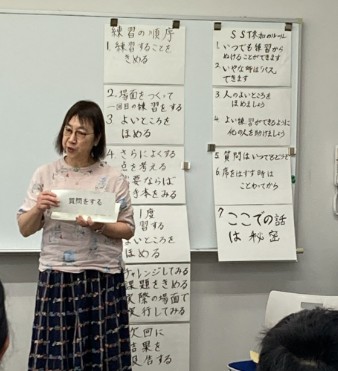 練習の順序
1.練習することを
きめる
2.場面をつくって
一回目の練習をする
3よいところを
ほめる
4.さらによくする
点を考える
要ならば
手本をみる
度
習する
よいところを
ほめる
チャレンジしてみる
課題をきめる
実際の場面で
実行してみる
次回に
結果を
報告する
質問をする
SST参加のルール
1.いつでも練習から
ぬけることができます
2.いやな時はパス
できます
3.人のよいところを
ほめましょう
4.よい練習ができるように
他の人を助けましょう
5 質問はいつでもどうぞ
6.席をはずす時は
ことわってから
7 ここでの話
は秘密